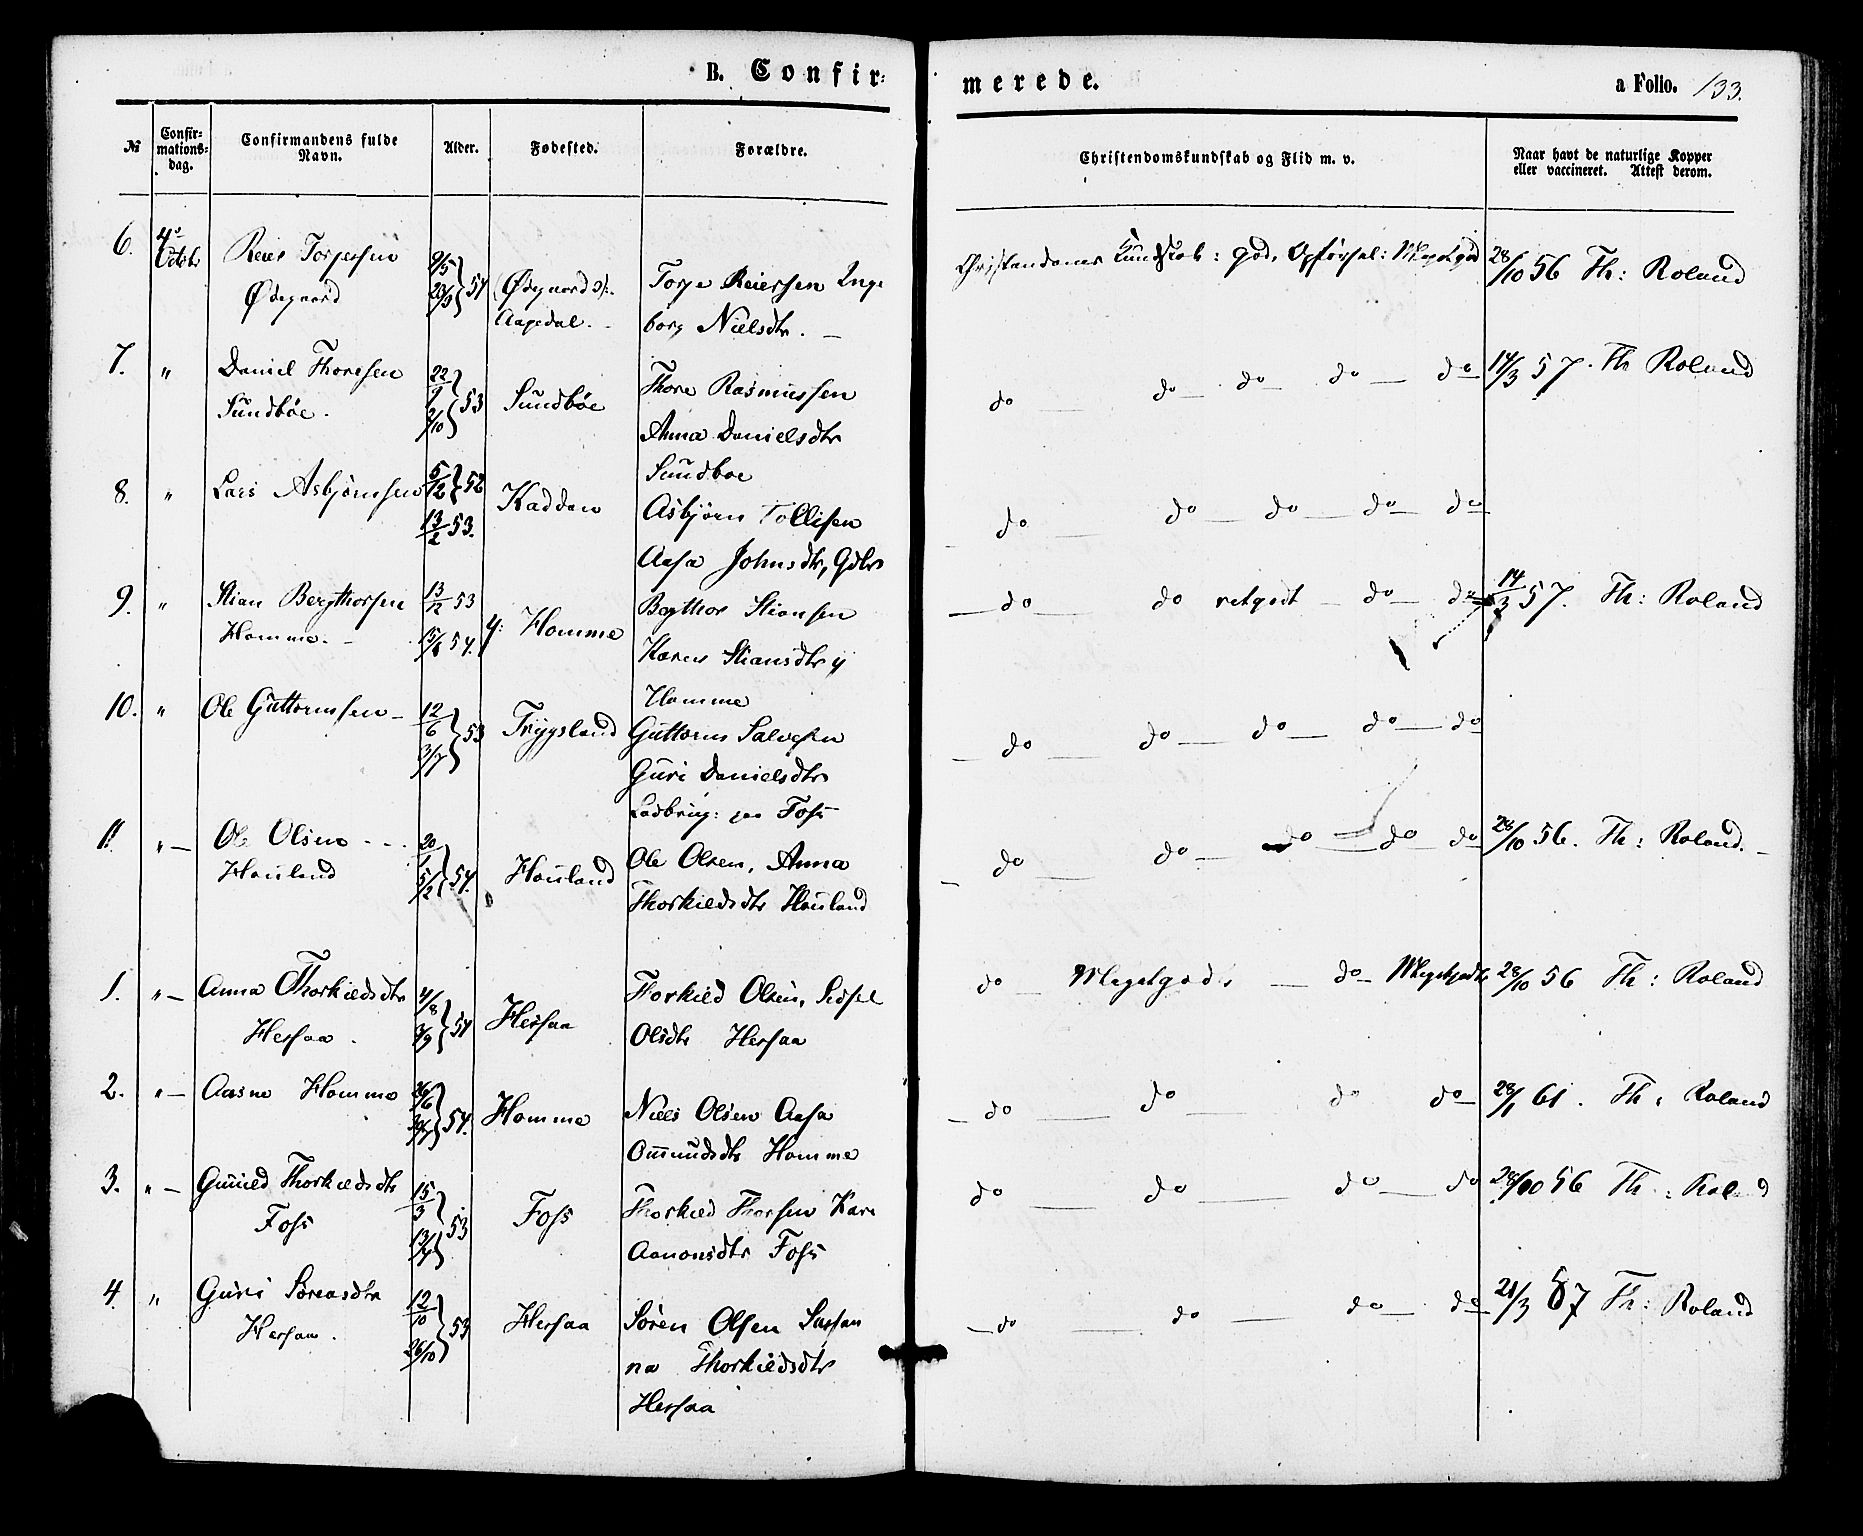 B. Confir-
merede.
a Folio. 133.
№
Confir-
mations-
dag.
Confirmandens fulde
Navn.
Alder.
Fødested.
Forældre.
Christendomskundskab og Flid m. v.
Naar havt de naturlige Kopper
eller vaccineret. Attest derom.
6. 4de Octobr Reier Torjesen 9/5 54 (Ødegaard Torje Reiersen Inge
Ødegaard Aagedal. borg Nielsdtr.
Kundskab: god. Opførsel: Meget god 28/10 56 Th: Roland
7. " Daniel Thoresen 22/9 53 Sundbøe Thore Rasmussen
Sundbøe. 2/10 Anna Danielsdtr
Sundboe
do do do do do 14/3 57. Th Roland
8. " Lars Asbjörnsen 5/12 52 Kadden Asbjörn Tollisen
13/2 53. Aasa Johnsdtr,
do do do do do
9. " Stian Bergthorsen 13/12 53 y: Homme Bergthor Stiansen
Homme. 15/1 54. Karen Stiansdtr y
Homme
do do retgodt do do 14/3 57. Th: Roland
10. " Ole Guttormsen 12/6 53 Trygsland Guttorm Salvesen
3/7 Guri Danielsdtr
Foss
do do do do do
11. " Ole Olsen 20/1 54. Houland Ole Olsen, Anna
Houland 5/2 Thorkildsdtr Houland
do do do do do 28/10 56. Th: Roland.
1. " Anna Thorkildsdtr 4/8 54 Hersaa Torkild Olsen, Sidsel
Hersaa. 3/9 Olsdtr Hersaa
do Megetgodt do Megetgodt 28/10 56 Th: Roland
2. " Aasne Homme 26/6 54. Homme Niels Olsen Aasa
30/7 Omundsdtr Homme
do do do do 28/1 61. Th: Roland
3. " Gunild Thorkildsdtr 15/3 53 Foss Thorkild Thorsen Kari
Foss 13/4 Aanonsdtr Foss
do do do do 28/10 56 Th: Roland
4. " Guri Sørensdtr 12/10 53 Hersaa Søren Olsen Susan
Hersaa. 26/10 na Thorkildsdtr
Hersaa
do do do do 21/3 57 Th: Roland